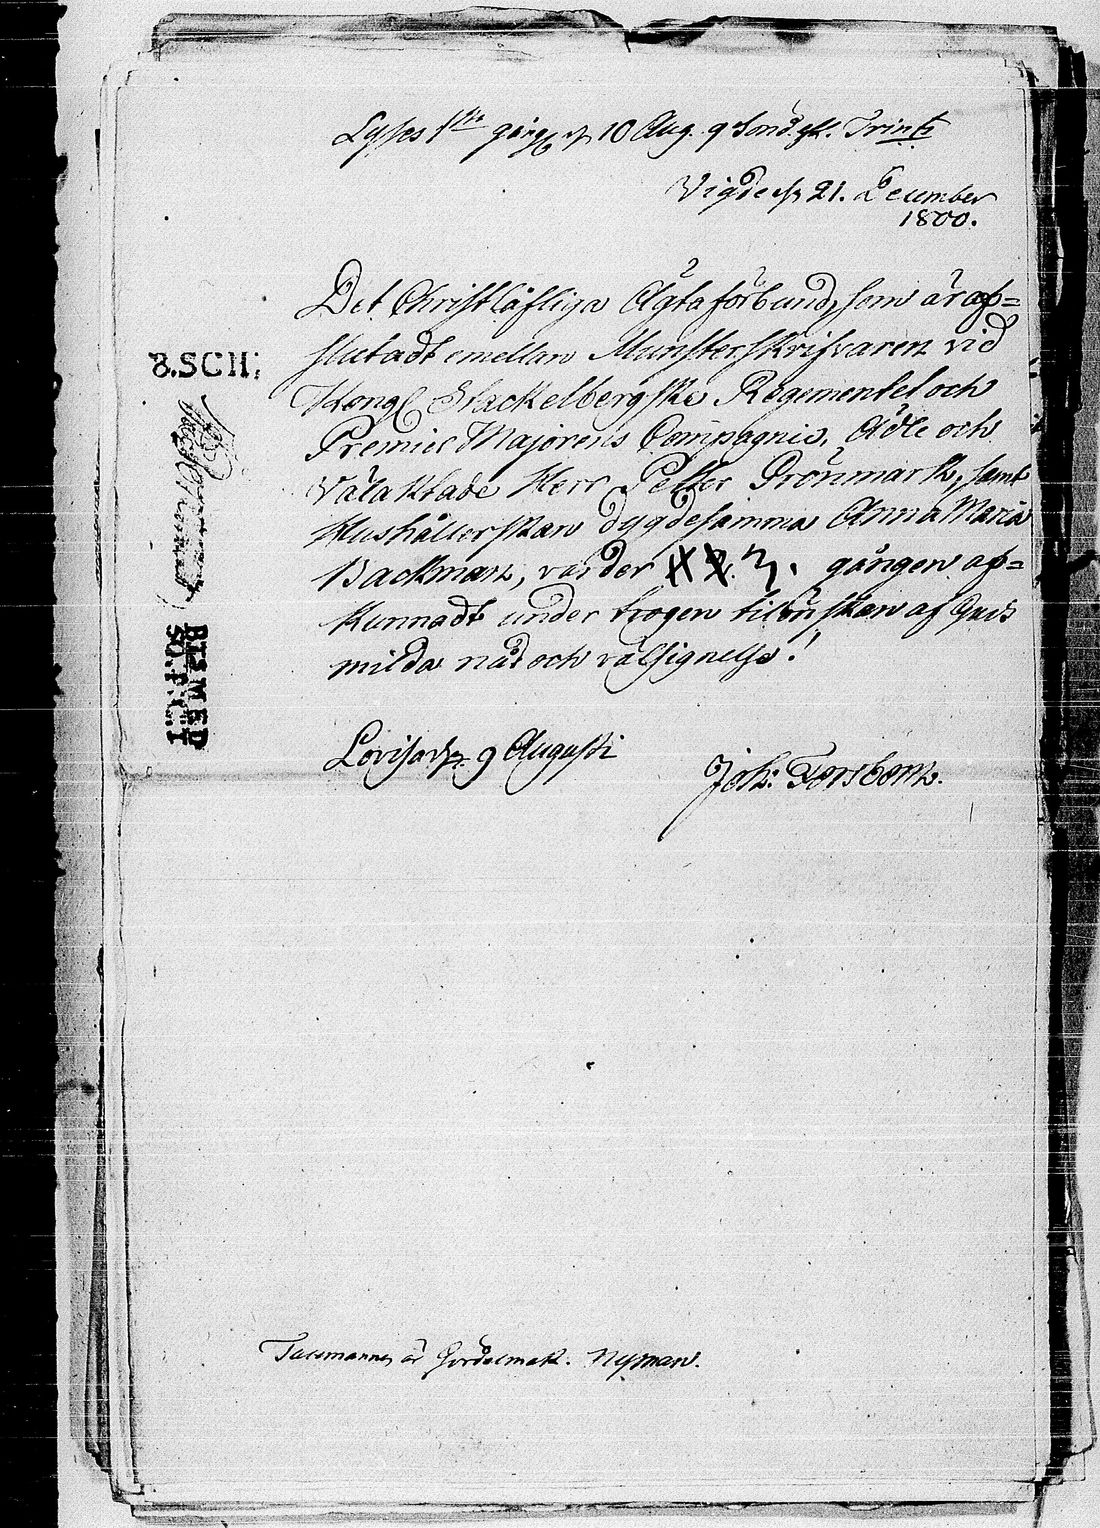 Lystes 1sta gång d. 10 Aug. 9 Sönd. ef. Trinit:
Vigde d. 21. December
1800.
Det Christlöfliga Ägtaförbund, som är af=
slutadt emellan Munsterskrifvaren vid
Kongl Stackelbergska Regementet och
Premier Majorens Compagnie, Ädle och
Välaktade Herr Petter Grönmark, samt
Hushållerskan dygdesamma Anna Maria
Backman, varder 1 2. 3. gången af=
kunnadt under trogen tilönskan af Guds
milda nåd och välsignelse!
8.SCH:
Lovisa d. 9 Augusti
Joh: Forsbom.
Talemannen är Gördelmak. Nyman.